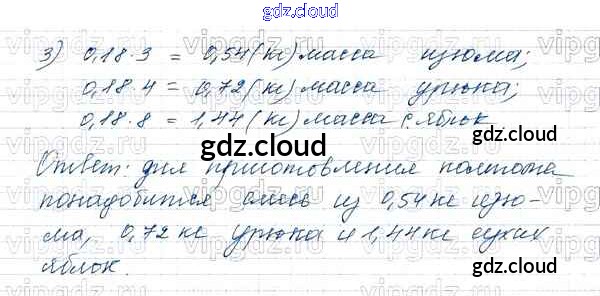 gdz.cloud
3) 0,18·3 = 0,54(кг) масса изюма;
0,18·4 = 0,72(кг) масса урюка;
0,18·8 = 1,44(кг) масса с. яблок
gdz.cloud
gdz.cloud
Ответ: для приготовления компота
понадобится смесь из 0,54 кг изю-
ма, 0,72 кг урюка и 1,44 кг сухих
яблок.
gdz.cloud
gdz.cloud